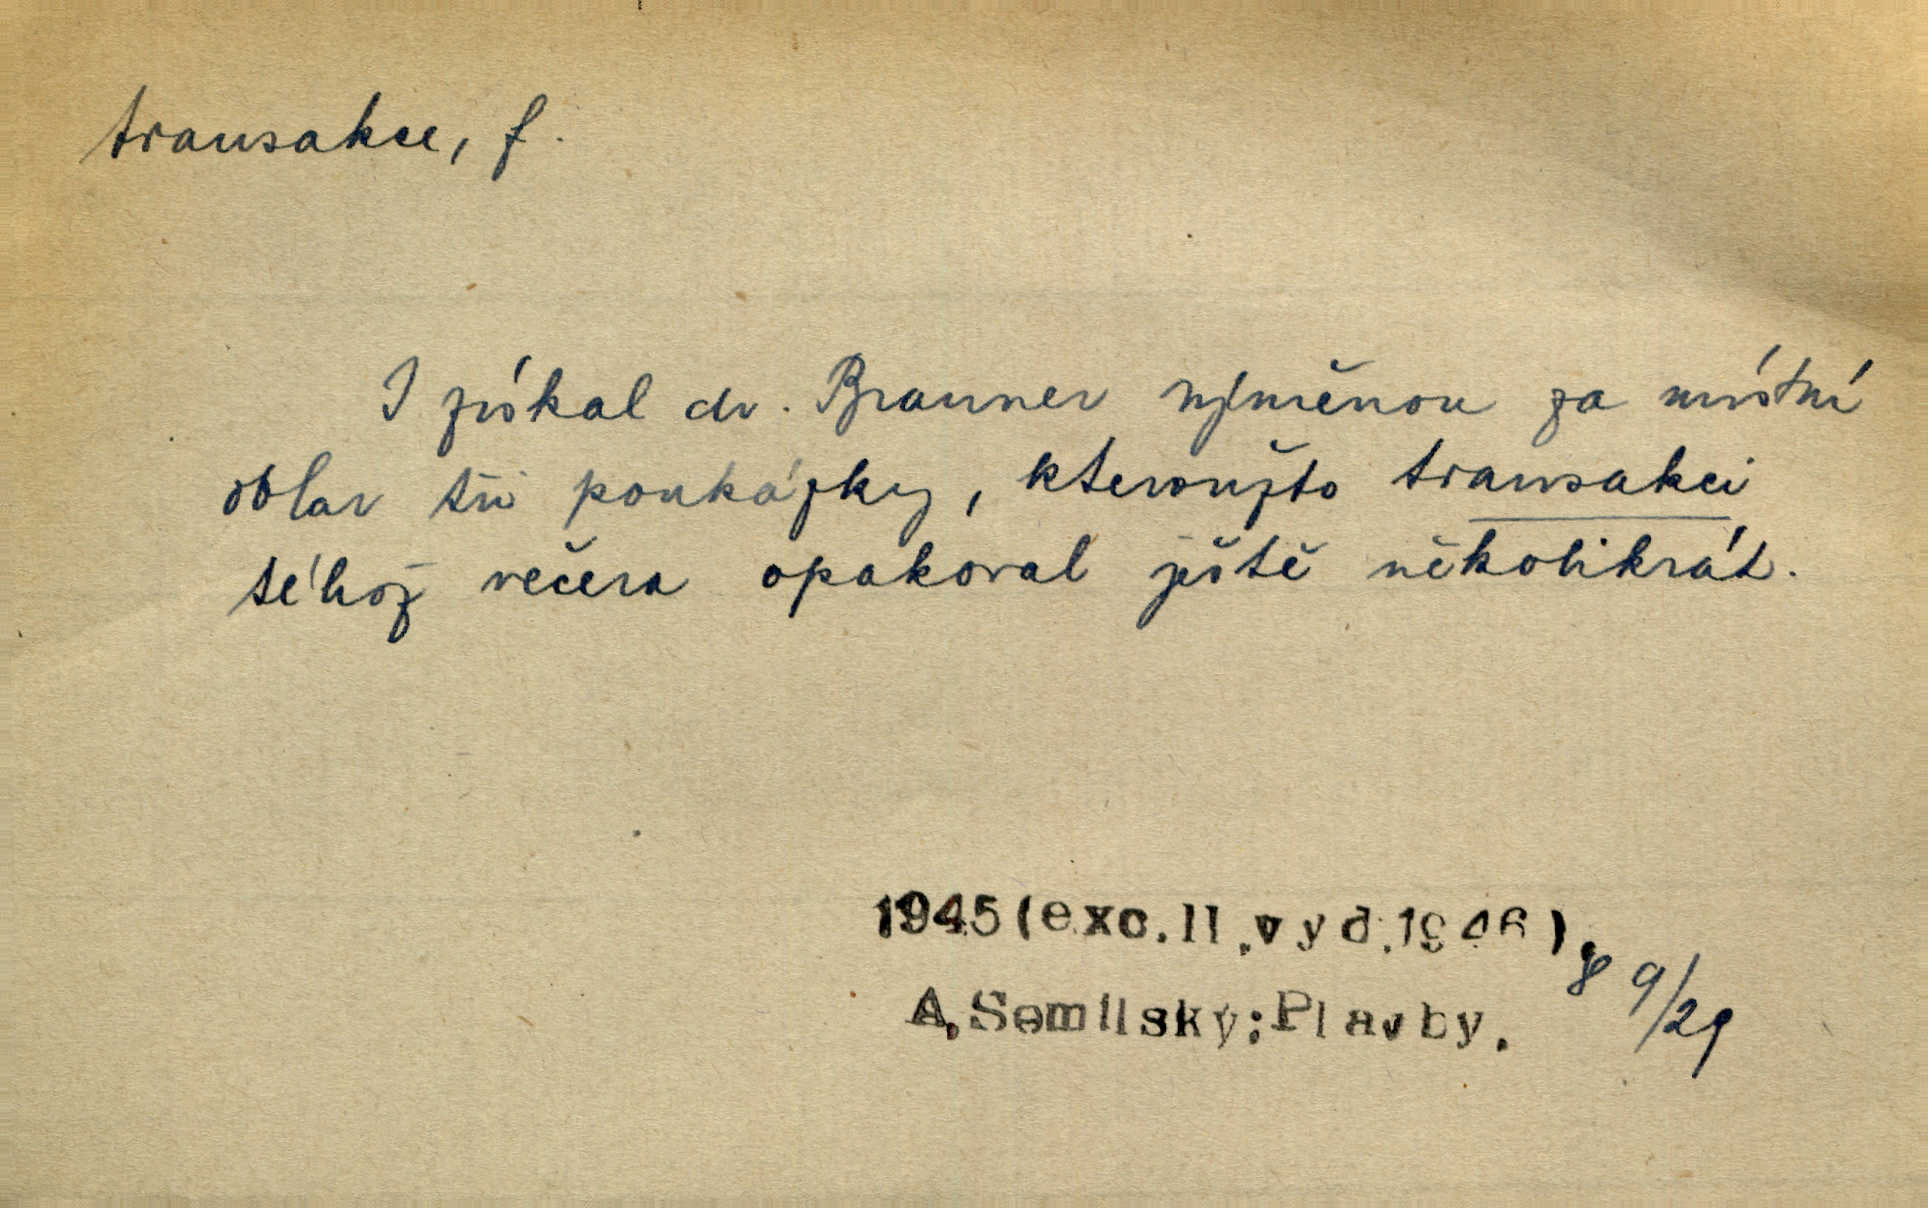 transakce, f.
I získal dr. Brauner výměnou za místní
oblar tři poukázky, kteroužto transakci
téhož večera opakoval ještě několikrát.
1945(exc.II.vyd.1946).
A.Semilský:Plavby. 89/29